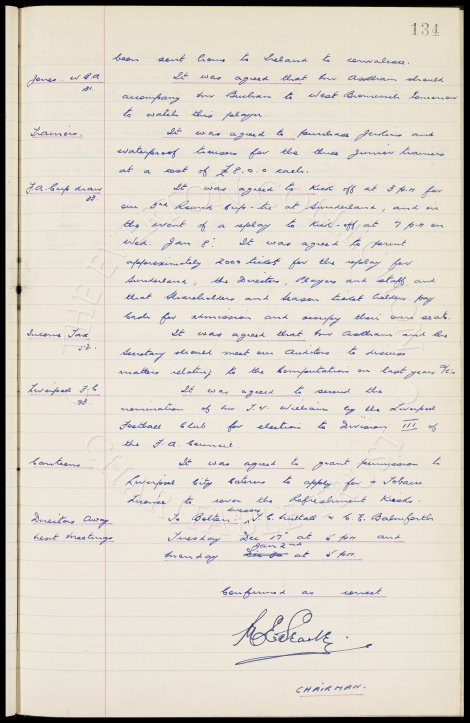 134
been sent home to Ireland to convalesce.
Jones. W.G.A It was agreed that Mr Astham should
accompany Mr Buchan to West Bromwich tomorrow
to watch this player.
Trainers. It was agreed to purchase Jerkins and
waterproof trousers for the three junior trainers
at a cost of £8.0.0 each.
F.A. Cup draw It was agreed to kick off at 3 p.m for
our 3rd Round Cup-tie at Sunderland, and in
the event of a replay to kick-off at 7 p.m on
Wed. Jan 8. It was agreed to print
approximately 2000 tickets for the replay for
Sunderland, the Directors, Players and staff, and
that Shareholders and Season ticket holders pay
cash for admission and occupy their own seats.
Income Tax It was agreed that Mr Astham and the
Secretary should meet our Auditors to discuss
matters relating to the Computation on last years a/cs.
Liverpool F.C It was agreed to second the
nomination of Mr T.V. Williams by the Liverpool
Football Club for election to Division III of
the F.A. Council.
Canteens It was agreed to grant permission to
Liverpool City Caterers to apply for a Tobacco
License to cover the Refreshment Kiosks.
Directors Away To Bolton: Messrs J.C. Nuttall & C.E. Balmforth
next meetings Tuesday Dec 17 at 5 p.m and
Monday Jan 2nd at 5 p.m.
Confirmed as correct
CHAIRMAN.